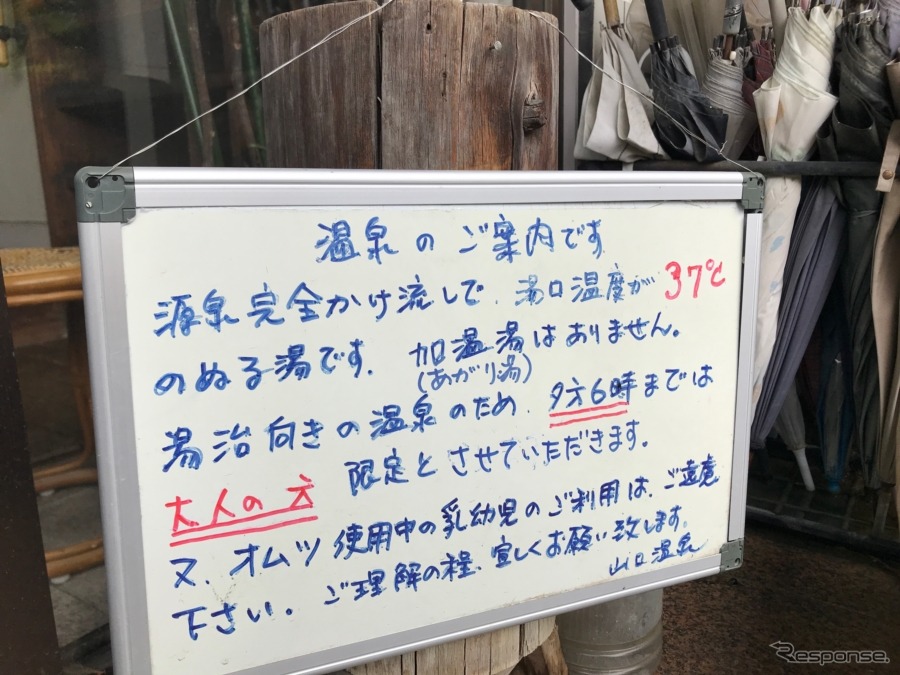 温泉のご案内です
源泉完全かけ流しで、湯口温度が37℃
のぬる湯です. 加温湯はありません。
(あがり湯)
湯治向きの温泉のため、夕方6時までは
大人の方 限定とさせていただきます。
又、オムツ使用中の乳幼児のご利用は、ご遠慮
下さい。ご理解の程、宜しくお願い致します。
山口温泉
Response.